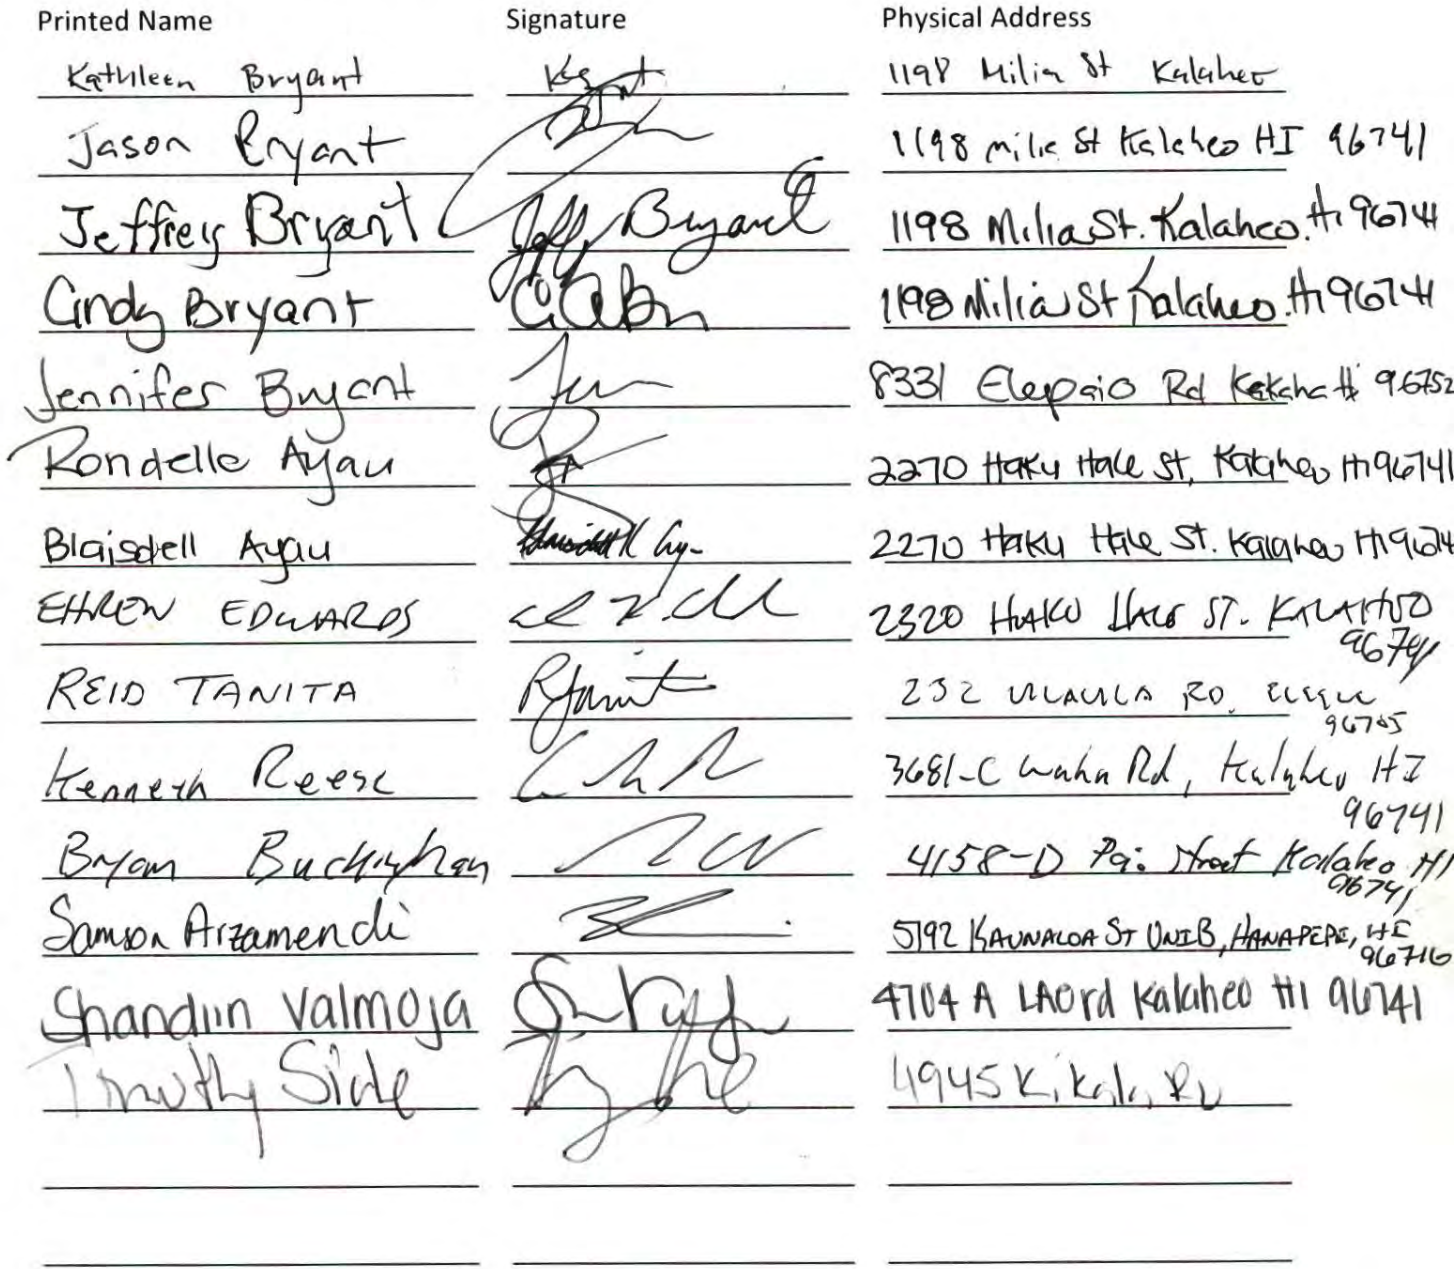 Printed Name Signature Physical Address
Kathleen Bryant 1198 Milia St Kalaheo
Jason Bryant 1198 Milia St Kalaheo HI 96741
Jeffrey Bryant Jeff Bryant 1198 Milia St. Kalaheo. Hi 96741
Cindy Bryant 1198 Milia St Kalaheo. Hi 96741
Jennifer Bryant Jen 8331 Elepaio Rd Kekaha Hi 96752
Rondelle Ayau 2270 Haku Hale St, Kalaheo Hi 96741
Blaisdell Ayau 2270 Haku Hale St. Kalaheo Hi 9674
EHREN EDWARDS 2320 HAKU HALE ST. KALAHEO
96741
REID TANITA RTanita 232 ULAULA RD. ELEELE
96705
Kenneth Reese 3681-C Waha Rd, Kalaheo HI
96741
Bryan Buckingham 4158-D Street Kalaheo HI
96741
Samson Arzamendi 5192 KAUNALOA ST UNIB, HANAPEPE, HI
96716
Shandiin Valmoja 4704 A LAO rd Kalaheo HI 96741
Timothy Side 4945 Kikala Rd